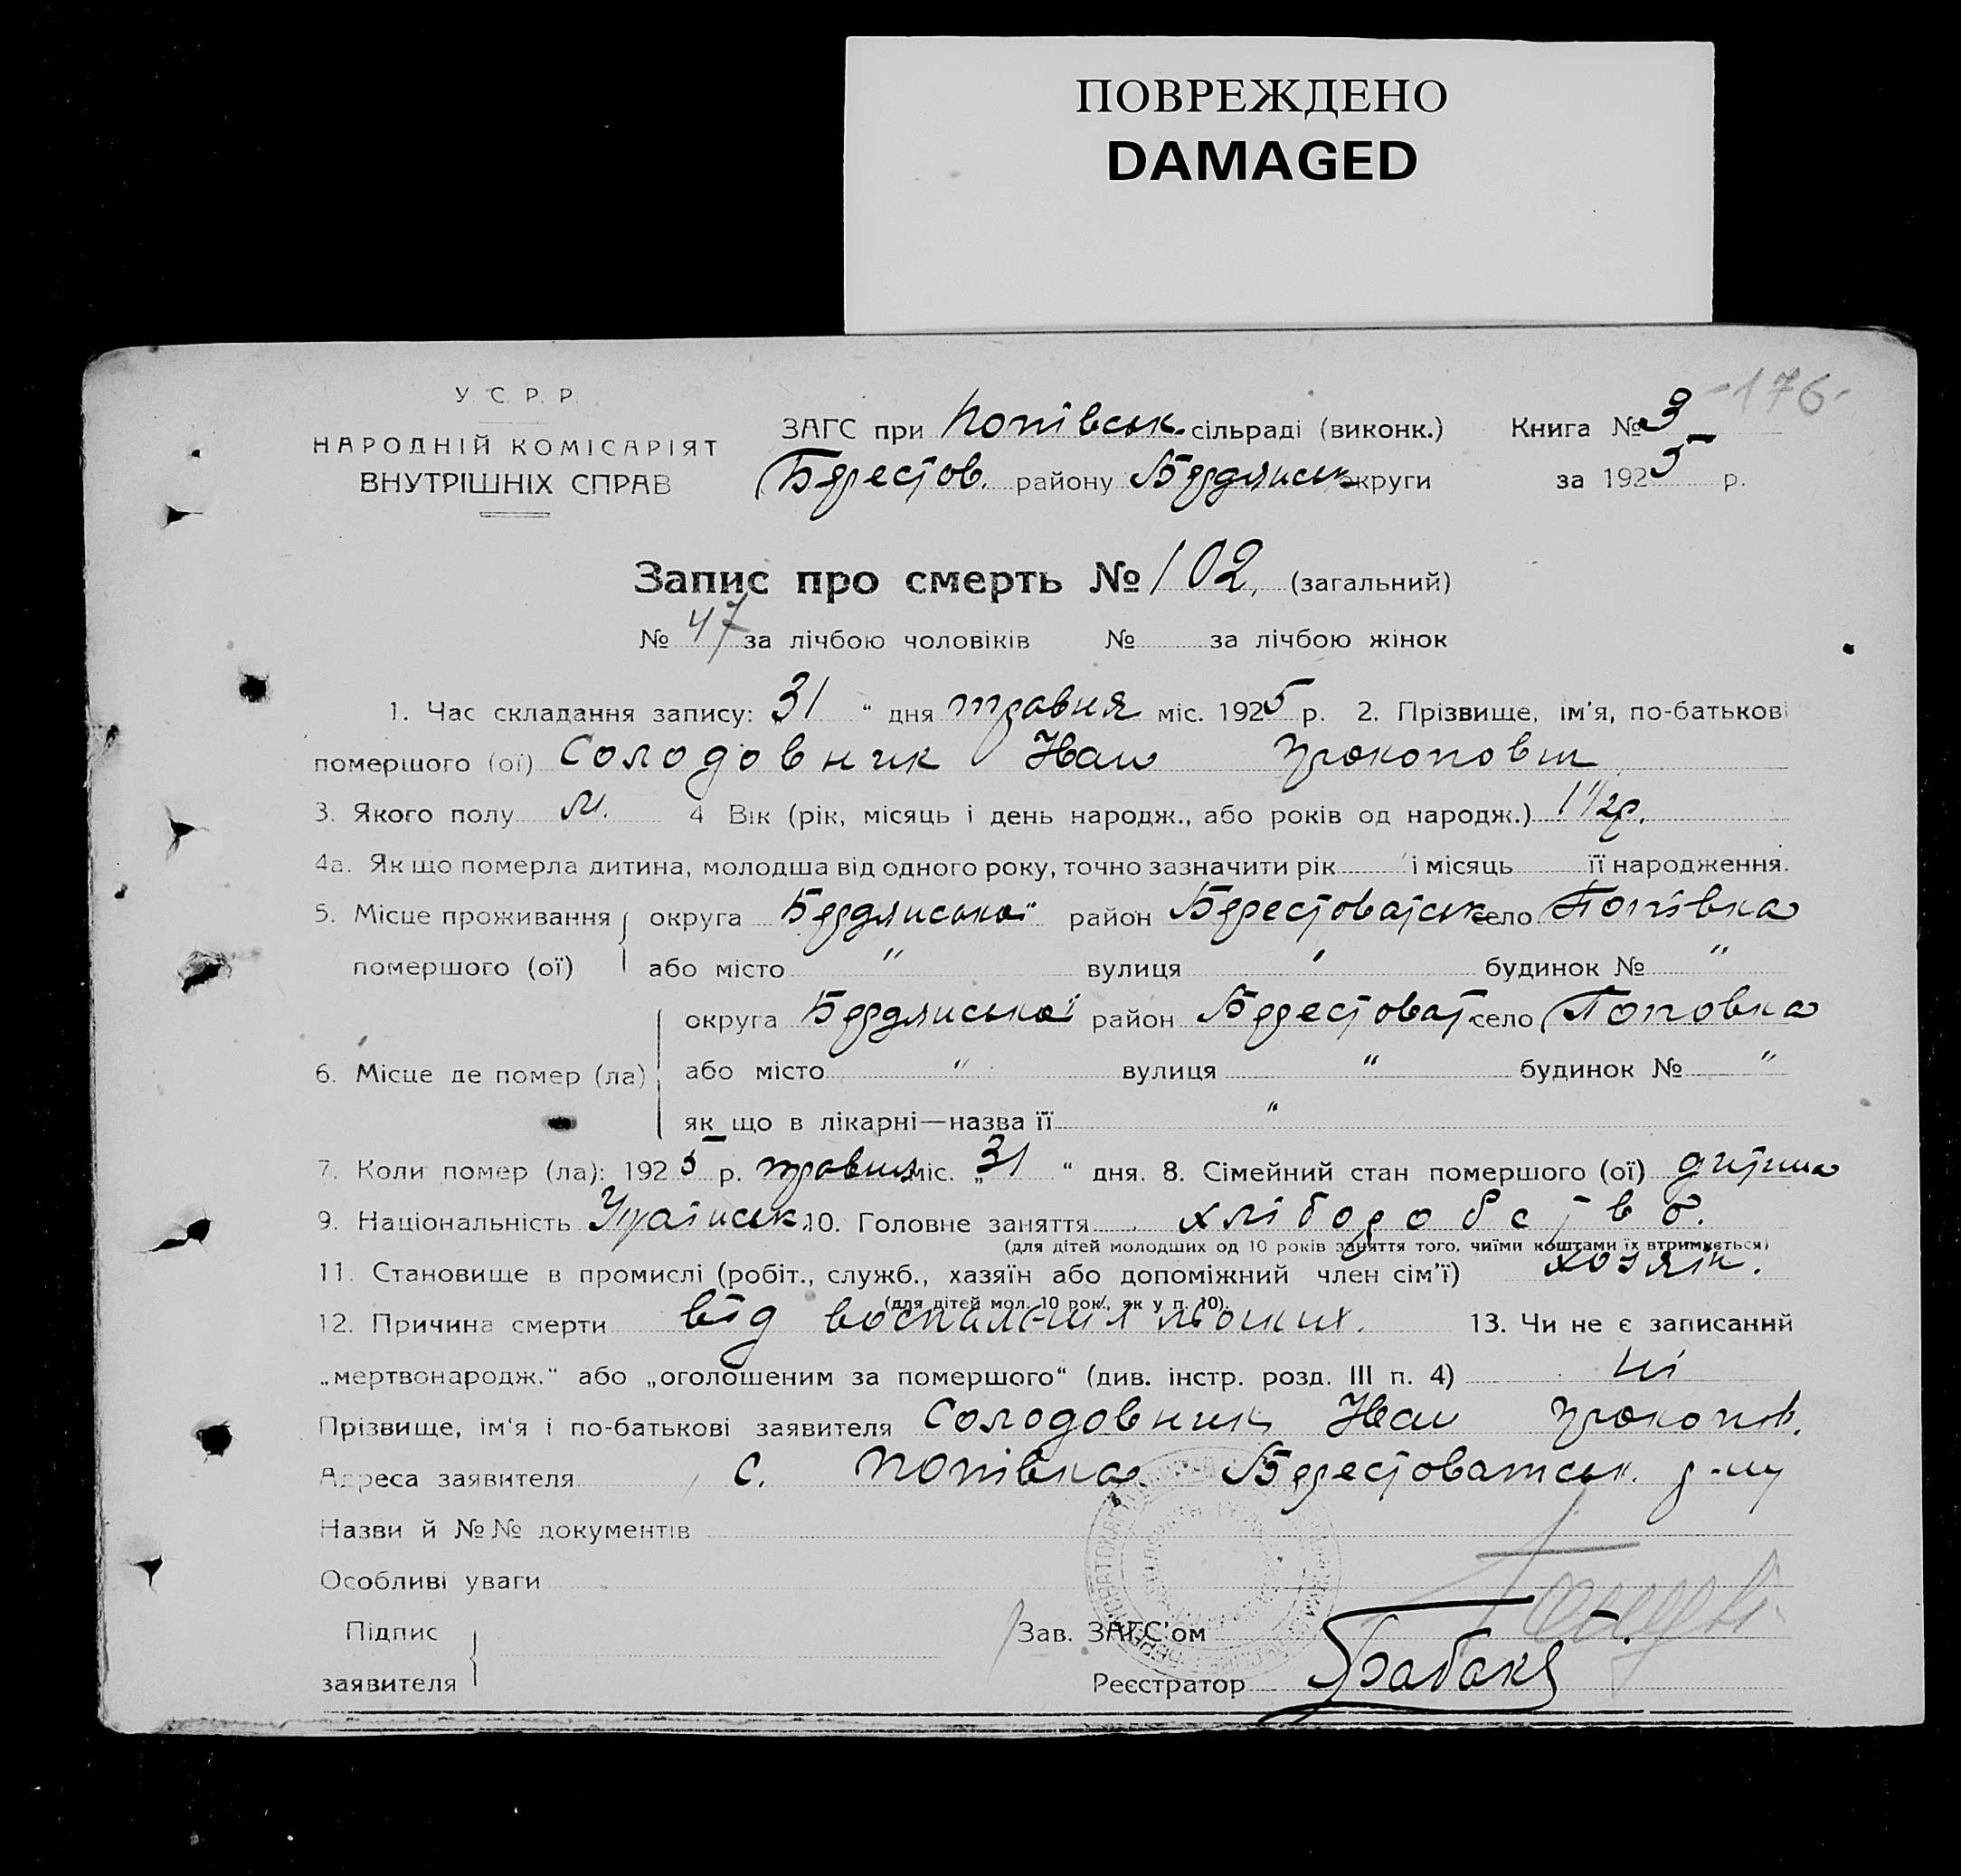 ПОВРЕЖДЕНО
DAMAGED
-176-
У. С. Р. Р.
НАРОДНІЙ КОМІСАРІЯТ
ВНУТРІШНІХ СПРАВ
ЗАГС при Попівськ. сільраді (виконк.) Книга № 3
Берестов. району Бердянськ округи за 1925 р.
Запис про смерть № 102, (загальний)
№ 47 за лічбою чоловіків № за лічбою жінок
1. Час складання запису: 31 " дня травня міс. 1925 р. 2. Прізвище, ім'я, по-батькові
помершого (ої) Солодовник Иван Прокопович
3. Якого полу М. 4 Вік (рік, місяць і день народж., або років од народж.) 1 1/2 р.
4а. Як що померла дитина, молодша від одного року, точно зазначити рік і місяць її народження.
5. Місце проживання округа Бердянської район Берестоватськ село Попівка
помершого (ої) або місто " вулиця " будинок № "
округа Бердянської район Берестоват село Поповка
6. Місце де помер (ла) або місто " вулиця " будинок № "
як що в лікарні—назва її "
7. Коли помер (ла): 1925 р. травня міс. „31 " дня. 8. Сімейний стан помершого (ої) дитина
9. Національність Україньськ. 10. Головне заняття хліборобство.
(для дітей молодших од 10 років заняття того, чиїми коштами їх втримується)
11. Становище в промислі (робіт., служб., хазяїн або допоміжний член сім'ї) хозяїн.
(для дітей мол. 10 рок., як у п. 10).
12. Причина смерти від воспаления льоких. 13. Чи не є записаний
„мертвонародж." або „оголошеним за помершого" (див. інстр. розд. III п. 4) ні
Прізвище, ім'я і по-батькові заявителя Солодовник Иван Прокопов.
Адреса заявителя с. Попівка Берестоватськ. р-ну
Назви й №№ документів
Особливі уваги
Підпис
заявителя
Зав. ЗАГС'ом
Реєстратор